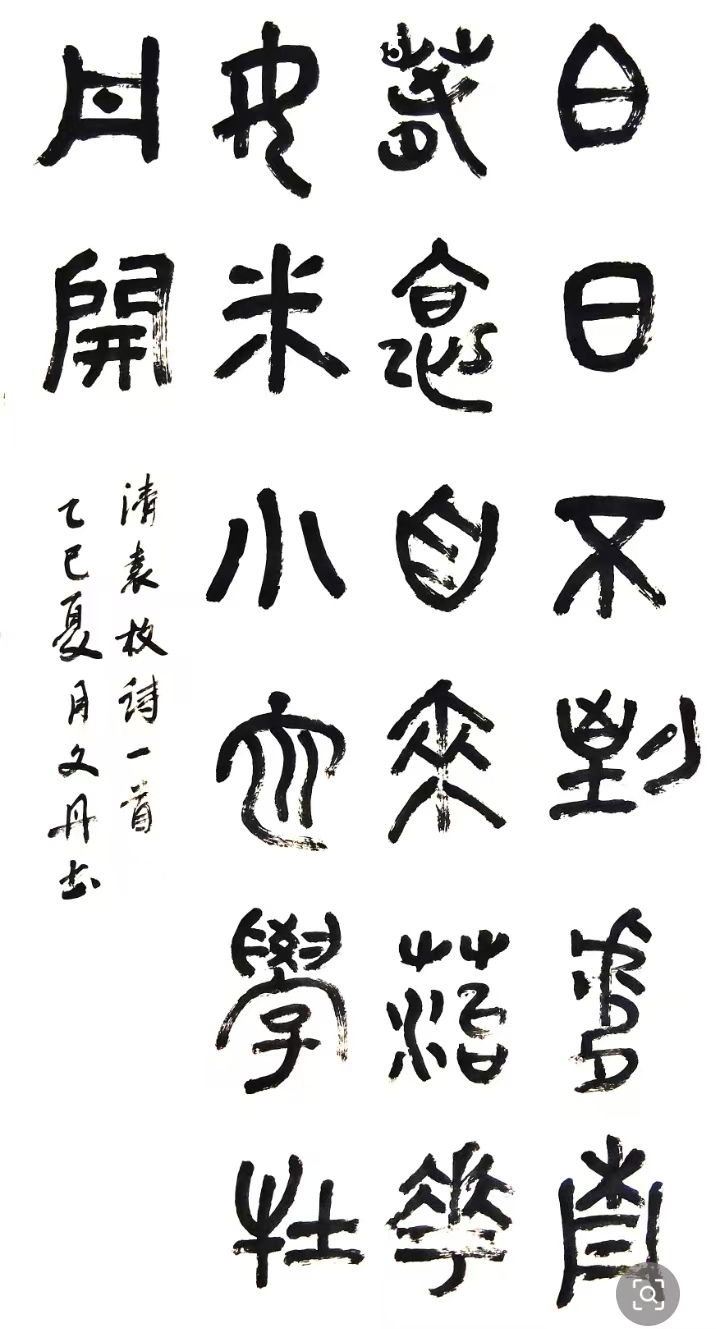 白日不到處青
萅恰自來苔花
如米小也學牡
丹開
清袁枚詩一首
乙巳夏月文丹書